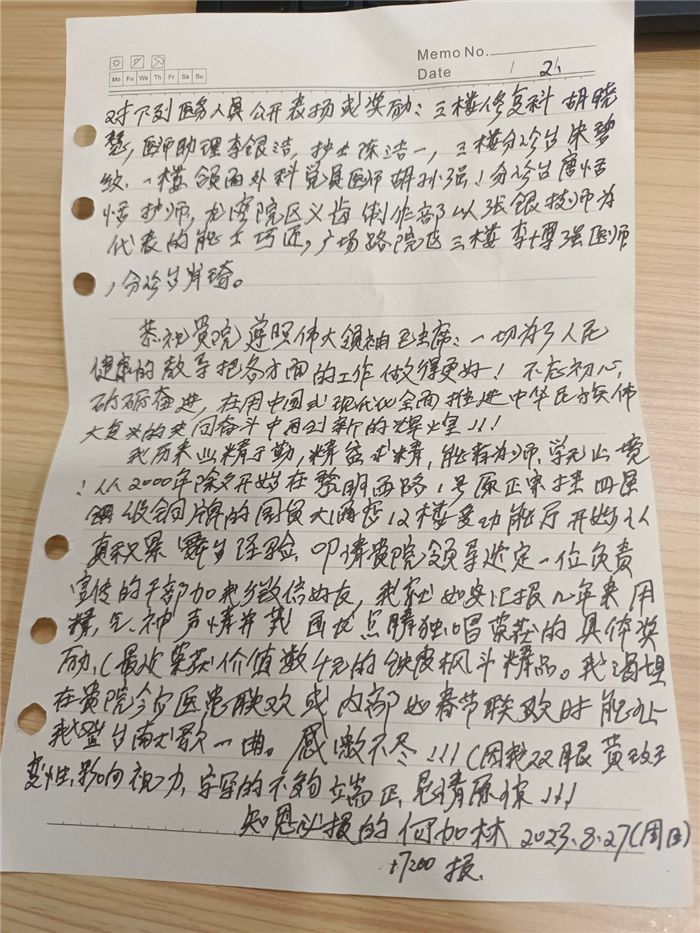 Memo No.
Date / 2
Mo Fu We Th Fr Sa Su
对下列医务人员公开表扬或奖励：三楼修复科 胡晓
，医师助理李银洁，护士陈洁一，三楼分诊台朱碧
纹，一楼颌面外科党员医师胡孙强！分诊台唐恬
恬护师，龙湾院区义齿制作部以张银技师为
代表的能士巧匠，广场路院区三楼李博强医师
，分诊台肖琦。
恭祝贵院遵照伟大领袖毛主席：一切为了人民
健康的教导把各方面的工作做得更好！不忘初心，
砥砺奋进，在用中国式现代化全面推进中华民族伟
大复兴的共同奋斗中再创新的辉煌！！！
我历来业精于勤，精益求精，能者为师，学无止境
！从2000年除夕开始在黎明西路1号原正宗挂四星
级铜牌的国贸大酒店12楼多功能厅开始认
真积累舞台经验，叩请贵院领导选定一位负责
宣传的干部加我为微信好友，我就如实汇报几年来用
精，气，神声情并茂画龙点睛独唱荣获的具体奖
励，（最近荣获价值数千元的铁皮枫斗精品。我渴望
在贵院今后医患联欢或内部如春节联欢时能让
我登台献歌一曲。感激不尽！！！（因我双眼黄斑
变性，影响视力，字写的不够端正，恳请原谅！！！
知恩必报的何加林 2023.8.27（周日）
报.